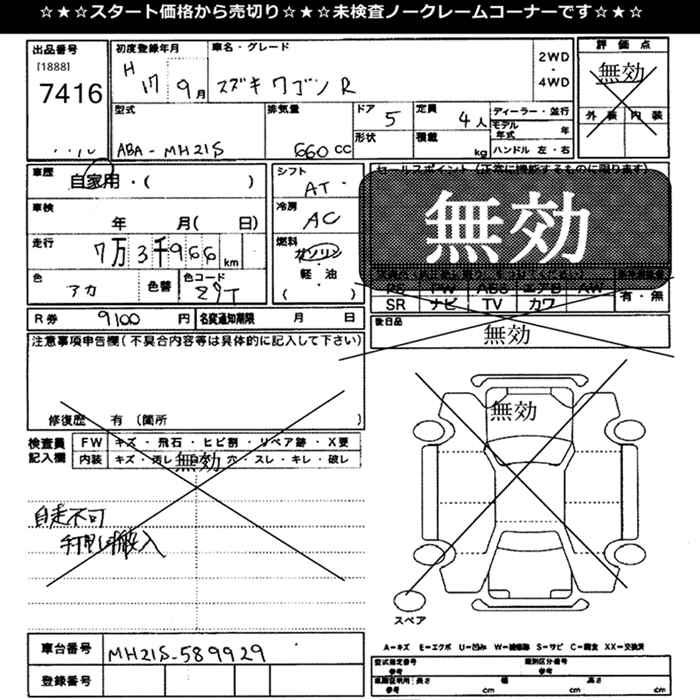 ☆★☆★スタート価格から売切り☆★☆★未検査ノークレームコーナーです☆★☆
出品番号
[1888]
7416
初度登録年月
H 17 9月
車名・グレード
スズキ ワゴン R
2WD
・
4WD
評価点
無効
外装 内装
型式
ABA-MH21S
排気量
660 cc
ドア 5
形状
定員 4人
積載 kg
ディーラー・並行
モデル年式 年
ハンドル 左・右
車歴
自家用・( )
車検
年 月( 日)
走行
7万3千966km
色
アカ
色替
色コード
Z9T
シフト
AT
冷房
AC
燃料
ガソリン
・
軽油
( )
セールスポイント(正常に機能するものに限ります)
無効
PS PW ABS エアB AW
SR ナビ TV カワ
有・無
後日品
無効
R券 9100円
名変通知期限 月 日
注意事項申告欄(不具合内容等は具体的に記入して下さい)
修復歴 有 (箇所 )
検査員
記入欄
FW キズ・飛石・ヒビ割・リペア跡・X要
内装 キズ・汚レ・ 穴・スレ・キレ・破レ
無効
自走不可
搬入
無効
スペア
車台番号
MH21S-589929
登録番号
A-キズ E-エクボ U-凹み W-補修跡 S-サビ C-腐食 XX-交換済
型式指定番号
参考
類別区分番号
参考
長さ cm
幅 cm
高さ cm